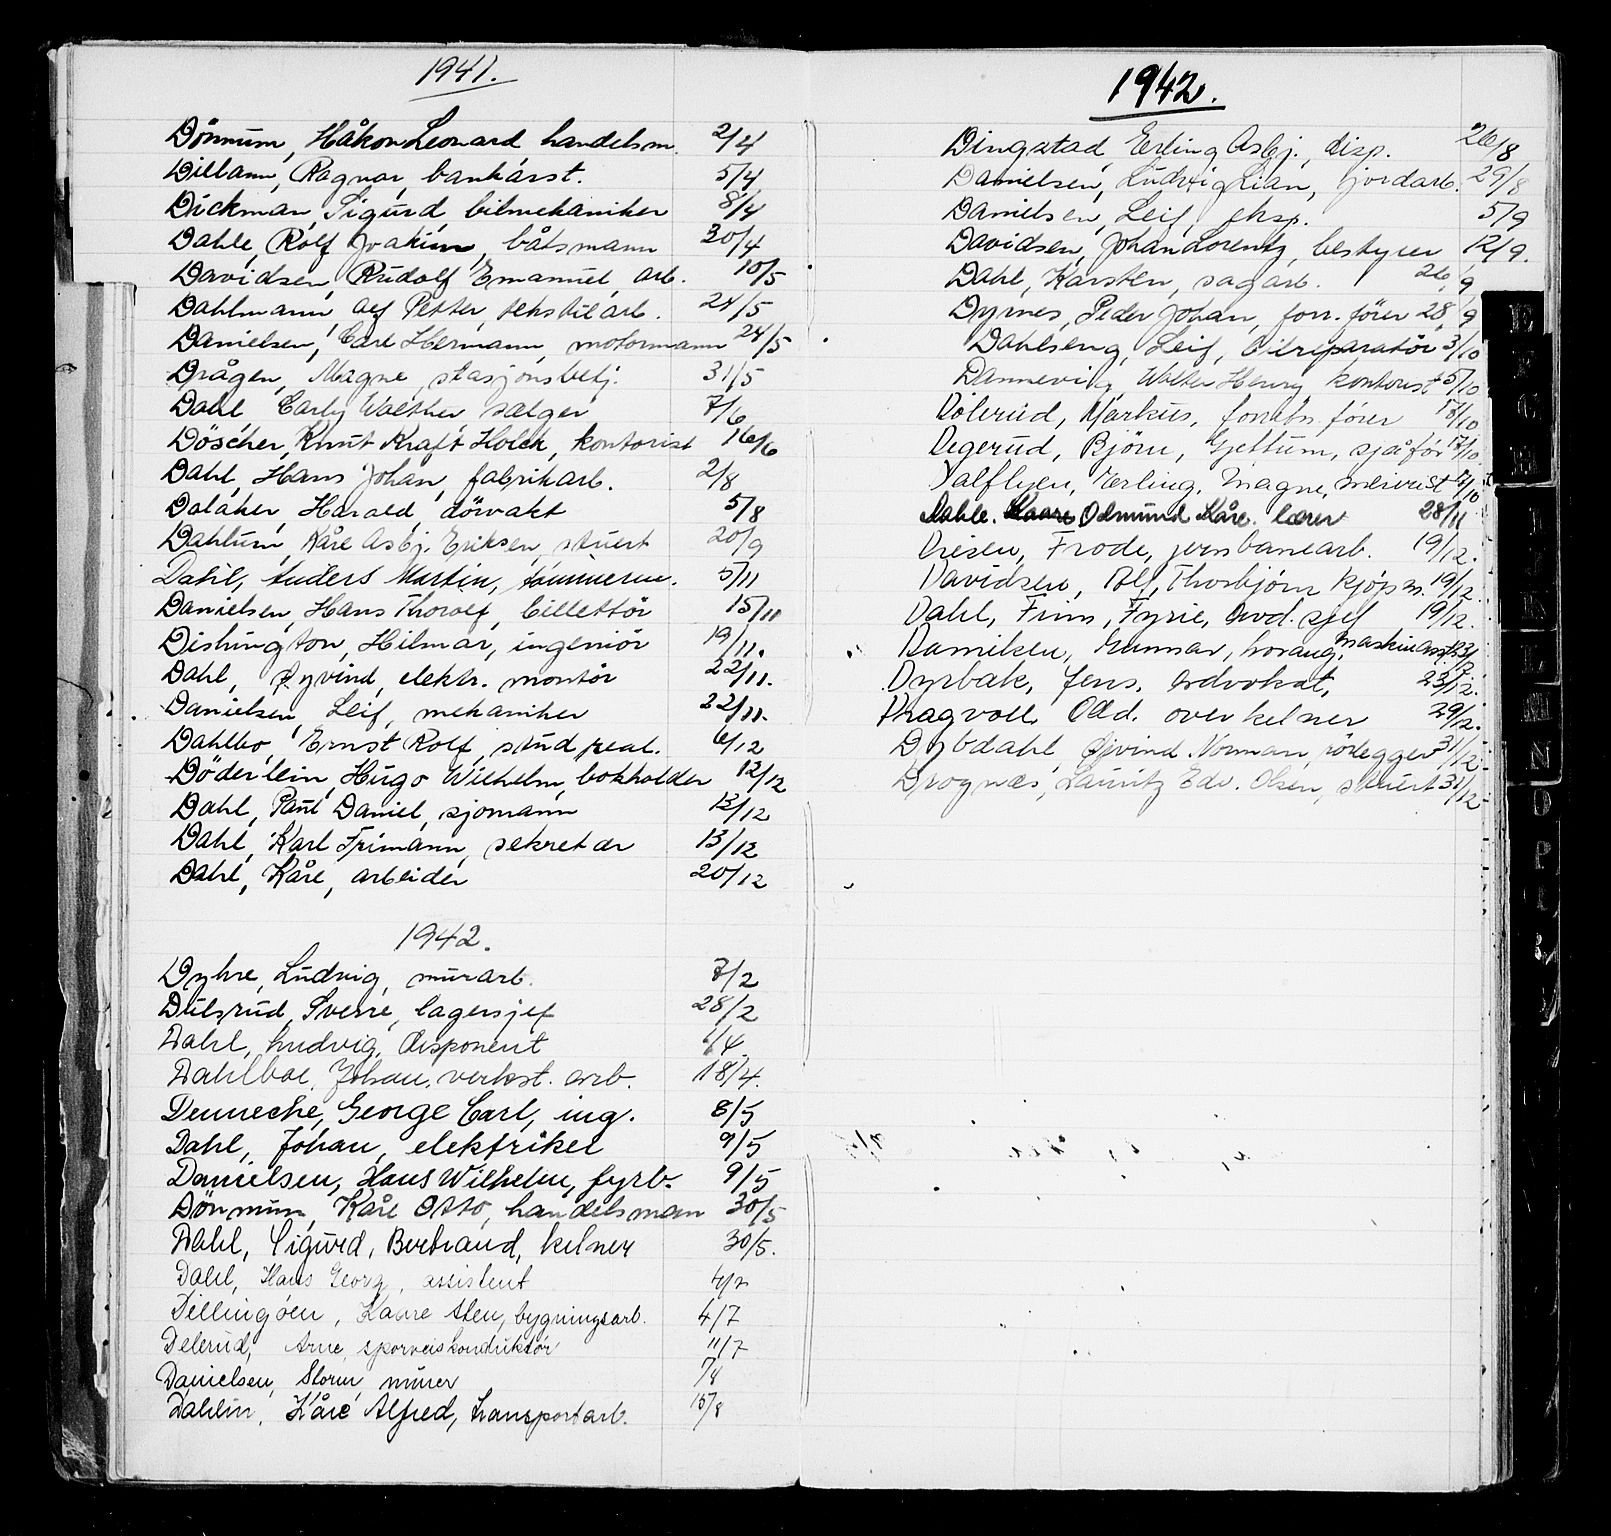 1941.
Dönnum, Håkon Leonard handelsm. 2/4
Dillann, Ragnar, bankásst. 5/4
Dickman, Sigurd bilmekaniker 8/4
Dahle, Rolf Joakim, båtsmann 30/4
Davidsen, Rudolf Emanuel, arb. 10/5
Dahlmann, Alf Petter, tekstilarb. 24/5
Danielsen, Carl Hermann, motormann 24/5
Drågen, Magne, stasjonsbetj. 31/5
Dahl Carly Walther selger 7/6
Döscher, Knut Kraft Holck, kontorist 16/6
Dahl, Hans Johan, fabrikarb. 2/8
Daláker, Harald, dörvakt 5/8
Dahlum, Kåre Asbj. Eriksen, stuert 20/9
Dahl, Anders Martin, tömmerm. 5/11
Danielsen, Hans Thorolf, billettör 15/11
Dishington, Hilmar, ingeniör 19/11.
Dahl, Øyvind, elektr. montör 22/11.
Danielsen, Leif, mekaniker 22/11.
Dahlbo, Ernst Rolf, stud. real. 6/12
Döderlein, Hugo Wilhelm, bokholder 12/12
Dahl, Paul Daniel, sjomann 13/12
Dahl, Karl Frimann, sekretær 13/12
Dahl, Kåre, arbeider 20/12
1942.
Dyhre, Ludvig, murarb. 7/2
Dulsrud, Sverre, lagersjef 28/2
Dahl, Ludvig, Disponent /4.
Dahlboe, Johan, verkst. arb. 18/4.
Denneche, George Carl, ing. 8/5
Dahl, Johan, elektriker 9/5
Danielsen, Hans Wilhelm, fyrb. 9/5
Dönnum, Kåre Otto, handelsmann 30/5
Dahl, Sigurd, Bertrand, kelner 30/5.
Dahl, Hans Georg, assistent 4/7
Dillingöen, Kaare Sten, bygningsarb. 4/7
Delerud, Arne, sporveiskonduktör 11/7
Danielsen, Storm murer 1/8
Dahlin, Kåre Alfred, transportarb. 15/8
1942.
Dingstad, Erling Asbj., disp. 26/8
Danielsen, Ludvig Lian, jordarb. 29/8
Danielsen, Leif, eksp. 5/9
Davidsen, Johan Lorentz, bestyrer 12/9.
Dahl, Karsten, sagarb. 26/9
Dyrnes, Peder Johan, forr. förer 28/9
Dahlseng, Leif, bilreparatör 3/10
Dannevig, Walter Henry kontorist 5/10
Dölerud, Markus, forretn. förer 17/10
Degerud, Björn, Gjettum, sjåför 17/10.
Dalflyen, Erling, Magne, meierist /10
Dahle. Kaare Odmund Kåre. lærer 28/11
Diesen, Frode, jernbanearb. 19/12.
Davidsen, Alf, Thorbjörn kjöpm. 19/12.
Dahl, Finn, Fyrie, avd. sjef 19/12.
Danielsen, Gunnar, maskinarb 23/12
Dyrbak, Jens, advokat, 23/12.
Dragvoll Odd. overkelner 29/12.
Dybdahl, Øjvind Norman, rörlegger 31/12.
Drognæs, Lauritz Edv. Olsen, stuert 31/12
E
F
G
H
I
J
K
L
M
N
O
P